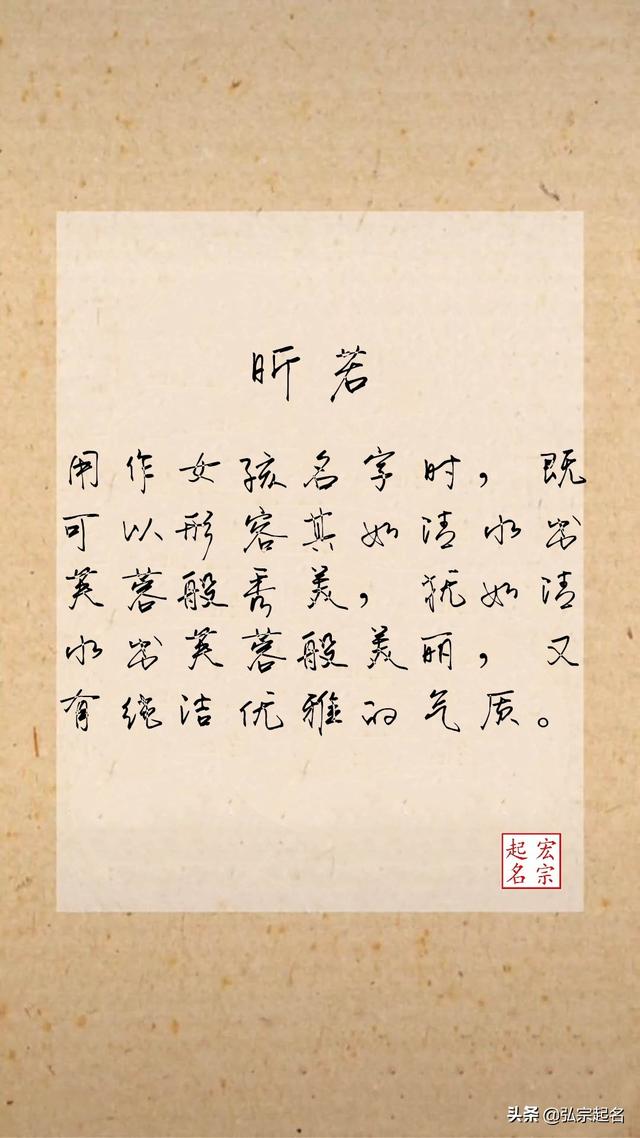 昕若
用作女孩名字时，既
可以形容其如清水出
芙蓉般秀美，犹如清
水出芙蓉般美丽，又
有纯洁优雅的气质。
宏宗
起名
头条 @弘宗起名